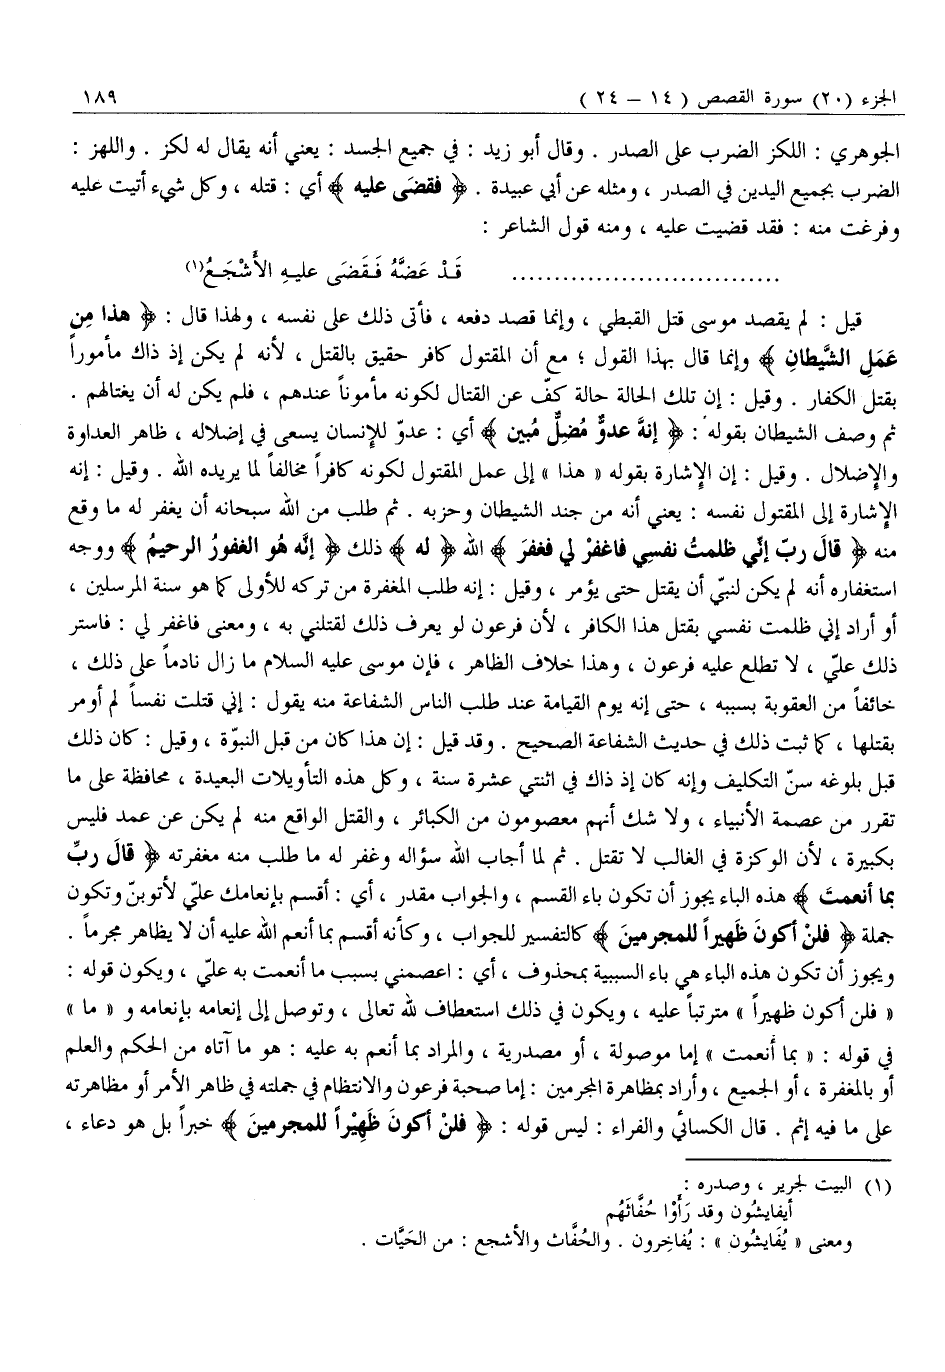 الجزء (٢٠) سورة القصص ( ١٤ – ٢٤ ) ١٨٩
الجوهري : اللكز الضرب على الصدر . وقال أبو زيد : في جميع الجسد : يعني أنه يقال له لكز . واللهز :
الضرب بجميع اليدين في الصدر ، ومثله عن أبي عبيدة . ﴿ فقضَى عليه ﴾ أي : قتله ، وكل شيء أتيت عليه
وفرغت منه : فقد قضيت عليه ، ومنه قول الشاعر :
................................ قَـدْ عَضَّهُ فَـقَضَى عليـهِ الأَشْجَـعُ(١)
قيل : لم يقصد موسى قتل القبطي ، وإنما قصد دفعه ، فأتى ذلك على نفسه ، ولهذا قال : ﴿ هذا مِن
عَمَلِ الشَّيطانِ ﴾ وإنما قال بهذا القول ؛ مع أن المقتول كافر حقيق بالقتل ، لأنه لم يكن إذ ذاك مأموراً
بقتل الكفار . وقيل : إن تلك الحالة حالة كفّ عن القتال لكونه مأموناً عندهم ، فلم يكن له أن يغتالهم .
ثم وصف الشيطان بقوله : ﴿ إنهُ عدوٌّ مُضلٌّ مُبين ﴾ أي : عدوّ للإنسان يسعى في إضلاله ، ظاهر العداوة
والإضلال . وقيل : إن الإشارة بقوله « هذا » إلى عمل المقتول لكونه كافراً مخالفاً لما يريده الله . وقيل : إنه
الإشارة إلى المقتول نفسه : يعني أنه من جند الشيطان وحزبه . ثم طلب من الله سبحانه أن يغفر له ما وقع
منه ﴿ قالَ ربّ إنّي ظلمتُ نفسي فاغفرْ لي فغفرَ ﴾ الله ﴿ له ﴾ ذلك ﴿ إنَّه هُو الغفورُ الرحيمُ ﴾ ووجه
استغفاره أنه لم يكن لنبيّ أن يقتل حتى يؤمر ، وقيل : إنه طلب المغفرة من تركه للأولى كما هو سنة المرسلين ،
أو أراد إني ظلمت نفسي بقتل هذا الكافر ، لأن فرعون لو يعرف ذلك لقتلني به ، ومعنى فاغفر لي : فاستر
ذلك عليّ ، لا تطلع عليه فرعون ، وهذا خلاف الظاهر ، فإن موسى عليه السلام ما زال نادماً على ذلك ،
خائفاً من العقوبة بسببه ، حتى إنه يوم القيامة عند طلب الناس الشفاعة منه يقول : إني قتلت نفساً لم أومر
بقتلها ، كما ثبت ذلك في حديث الشفاعة الصحيح . وقد قيل : إن هذا كان من قبل النبوّة ، وقيل : كان ذلك
قبل بلوغه سنّ التكليف وإنه كان إذ ذاك في اثنتي عشرة سنة ، وكل هذه التأويلات البعيدة ، محافظة على ما
تقرر من عصمة الأنبياء ، ولا شك أنهم معصومون من الكبائر ، والقتل الواقع منه لم يكن عن عمد فليس
بكبيرة ، لأن الوكزة في الغالب لا تقتل . ثم لما أجاب الله سؤاله وغفر له ما طلب منه مغفرته ﴿ قالَ ربِّ
بما أنعمتَ ﴾ هذه الباء يجوز أن تكون باء القسم ، والجواب مقدر ، أي : أقسم بإنعامك عليّ لأتوبنّ وتكون
جملة ﴿ فلنْ أكونَ ظَهيراً للمجرمينَ ﴾ كالتفسير للجواب ، وكأنه أقسم بما أنعم الله عليه أن لا يظاهر مجرماً .
ويجوز أن تكون هذه الباء هي باء السببية بمحذوف ، أي : اعصمني بسبب ما أنعمت به عليّ ، ويكون قوله :
« فلن أكون ظهيراً » مترتباً عليه ، ويكون في ذلك استعطاف لله تعالى ، وتوصل إلى إنعامه بإنعامه و « ما »
في قوله : « بما أنعمت » إما موصولة ، أو مصدرية ، والمراد بما أنعم به عليه : هو ما آتاه من الحكم والعلم
أو بالمغفرة ، أو الجميع ، وأراد بمظاهرة المجرمين : إما صحبة فرعون والانتظام في جملته في ظاهر الأمر أو مظاهرته
على ما فيه إثم . قال الكسائي والفراء : ليس قوله : ﴿ فلنْ أكونَ ظَهِيْراً للمجرمينَ ﴾ خبراً بل هو دعاء ،
(١) البيت لجرير ، وصدره :
أيفايشُون وقد رَأَوْا حُفَّاثَهُم
ومعنى « يُفَايشُون » : يُفاخِرون . والحُفَّاث والأشجع : من الحَيَّات .